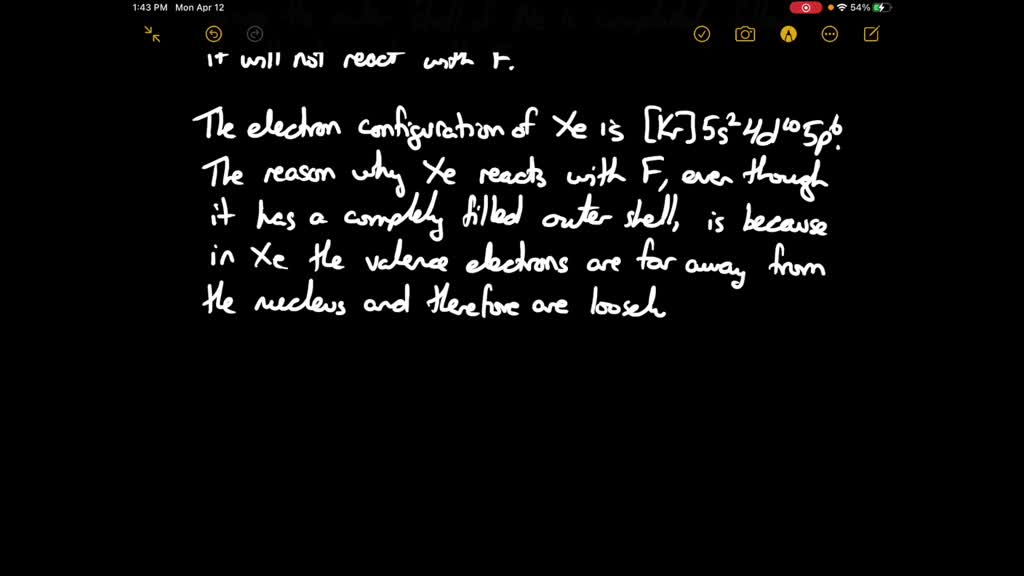 1:43 PM Mon Apr 12
54%
it will not react with F.
The electron configuration of Xe is [Kr]5s²4d¹⁰5p⁶.
The reason why Xe reacts with F, even though
it has a complety filled outer shell, is because
in Xe the valence electrons are far away from
the nucleus and therefore are loosel